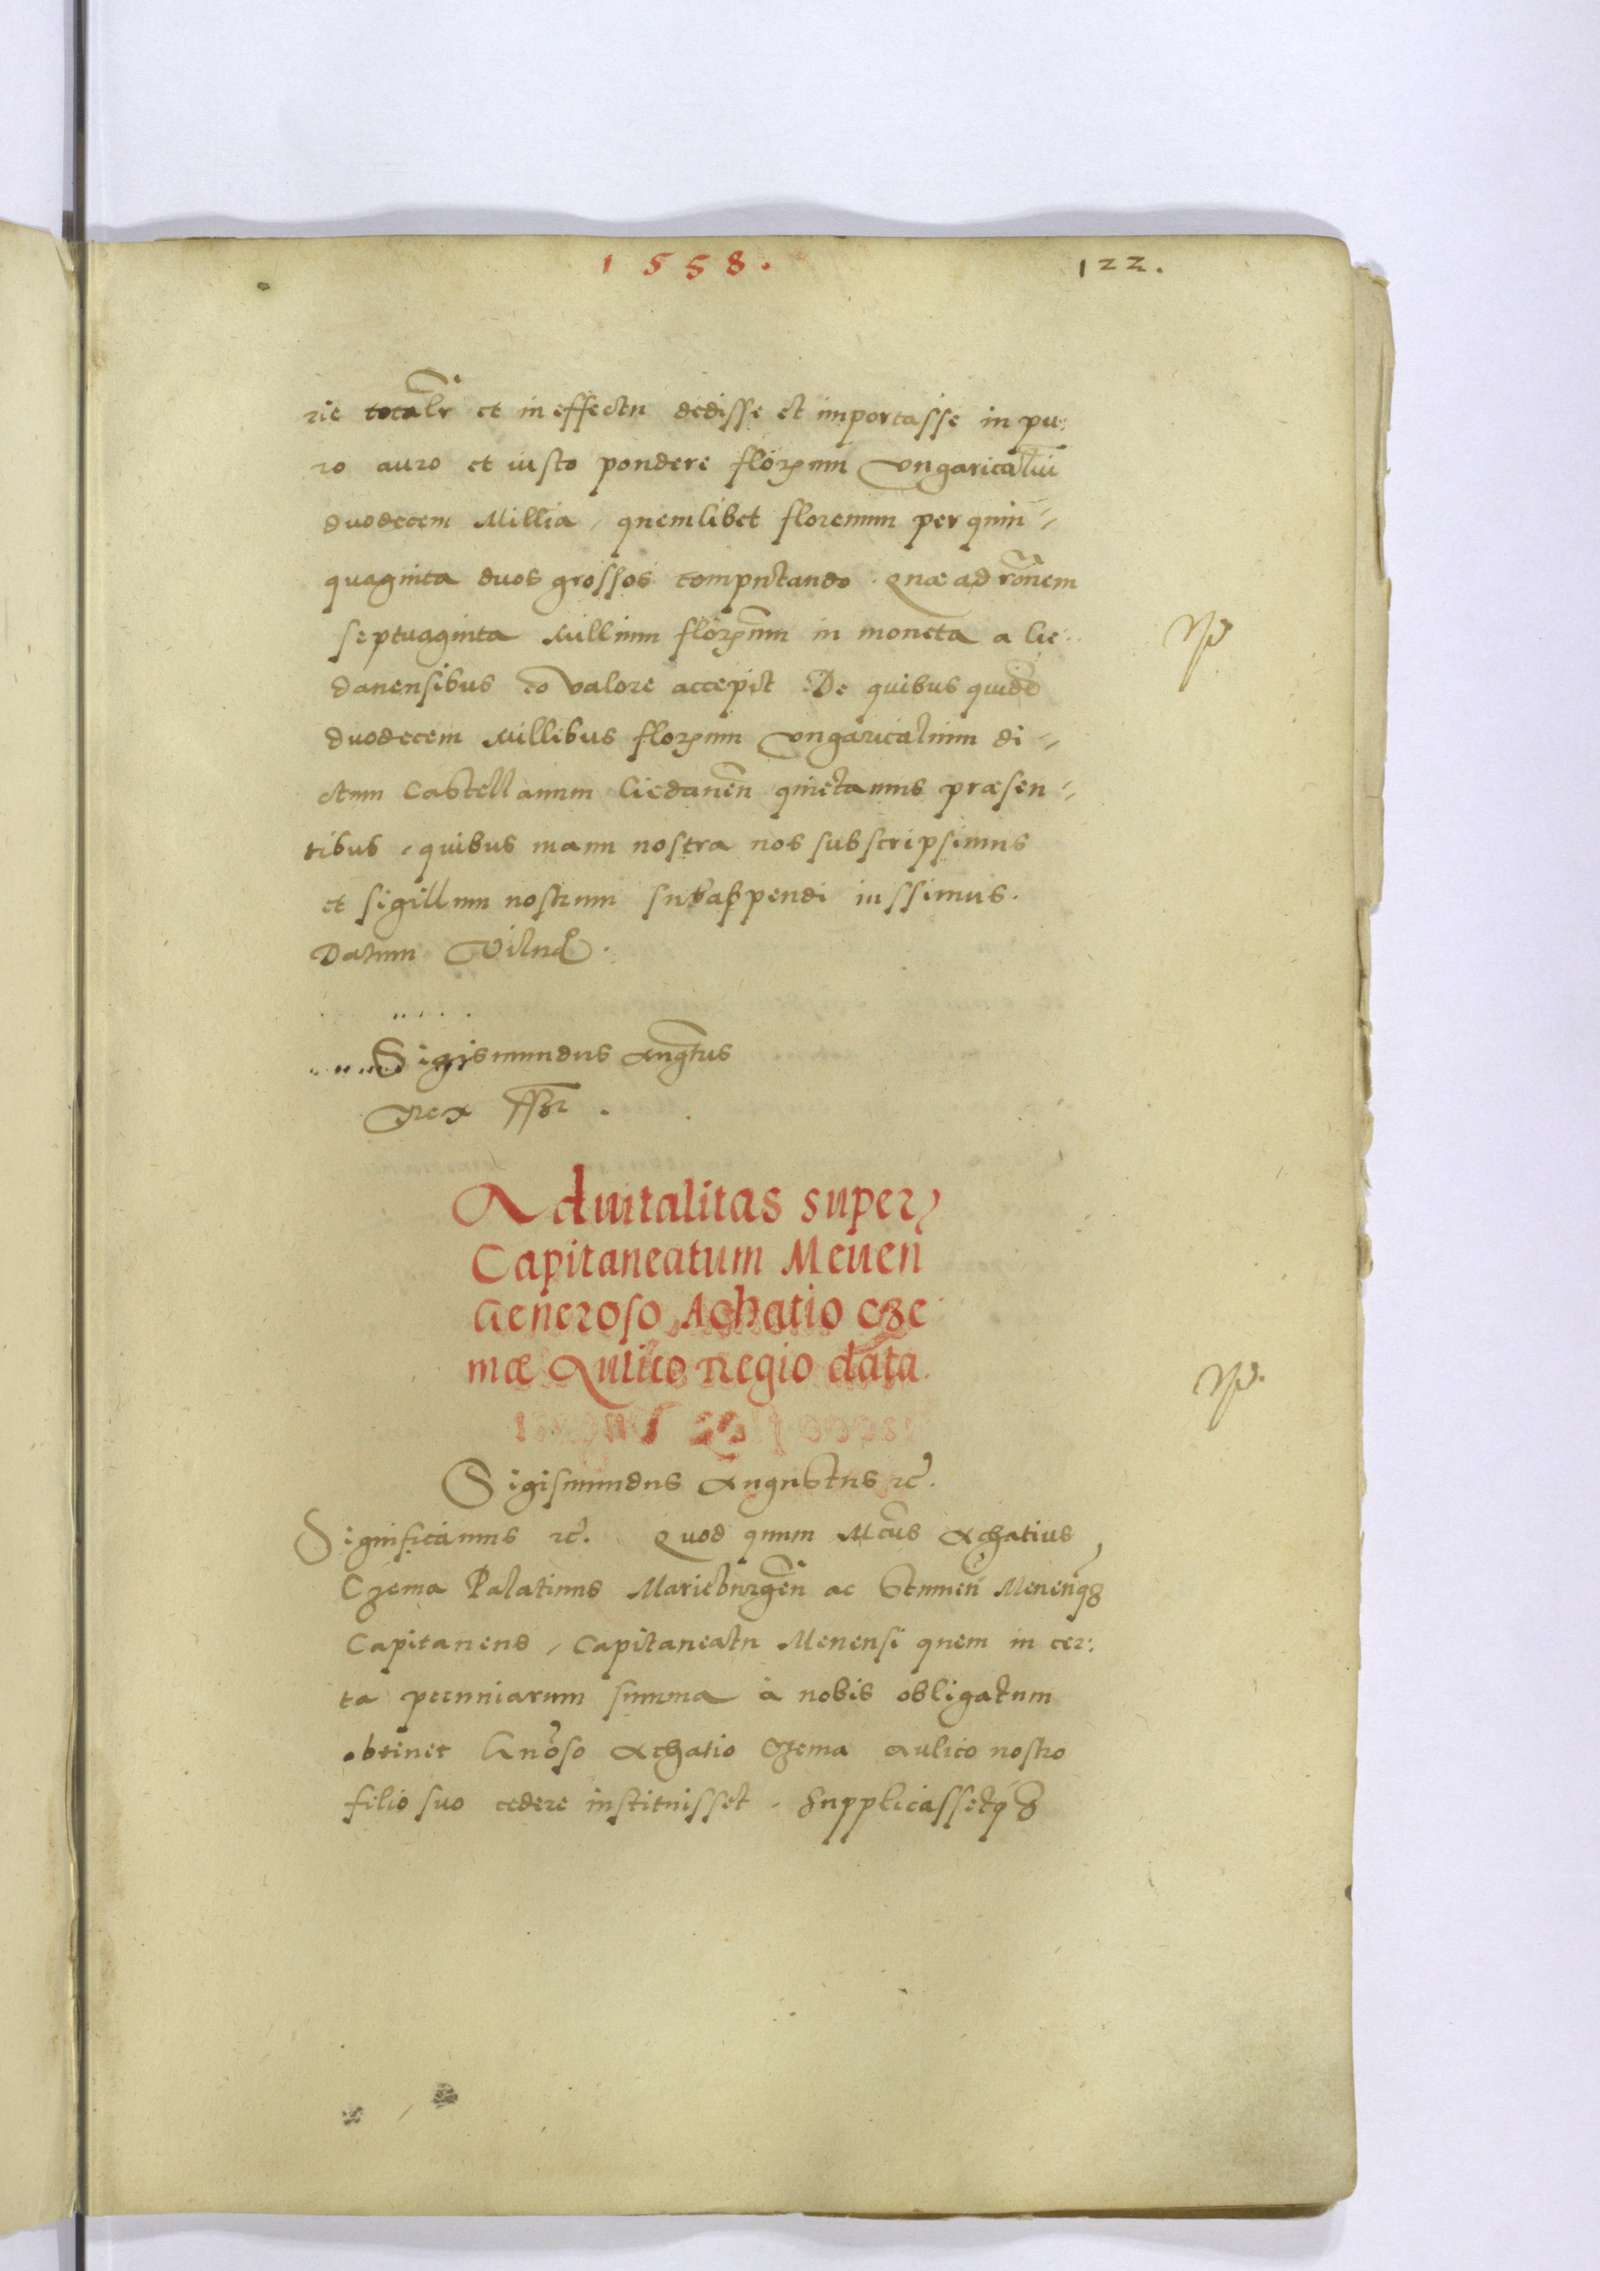 1558.
122.
rie totalr et in effectu dedisse et importasse in pu:
ro auro et iusto pondere florenum Vngaricaliu
duodecem Millia, quemlibet florenum per quin-
quaginta duos grossos computando. Quæ ad rōnem
septuaginta Millium florenum in moneta a Ge-
danensibus eo valore accepit De quibus quidē
duodecem Millibus florenum Vngaricalium di-
ctum Castellanum Gedanen̄ quietamus præsen-
tibus, quibus manu nostra nos subscripsimus
et sigillum nostrum subappendi iussimus.
Datum Vilnæ.
Sigismundus Augtus
Rex sst.
Aduitalitas super
Capitaneatum Meuen̄
Generoso Achatio Cze
mæ Aulico Regio data.
Sigismundus Augustus rc̄.
Significamus rc̄. Quod quum Mcus Achatius
Czema Palatinus Marieburgen̄ ac Stumen̄ Meuenq3
Capitaneus, Capitaneatu Meuensi quem in cer:
ta pecuniarum summa à nobis obligatum
obtinet Gnōso Achatio Czema Aulico nostro
filio suo cedere instituisset. Supplicassetq3